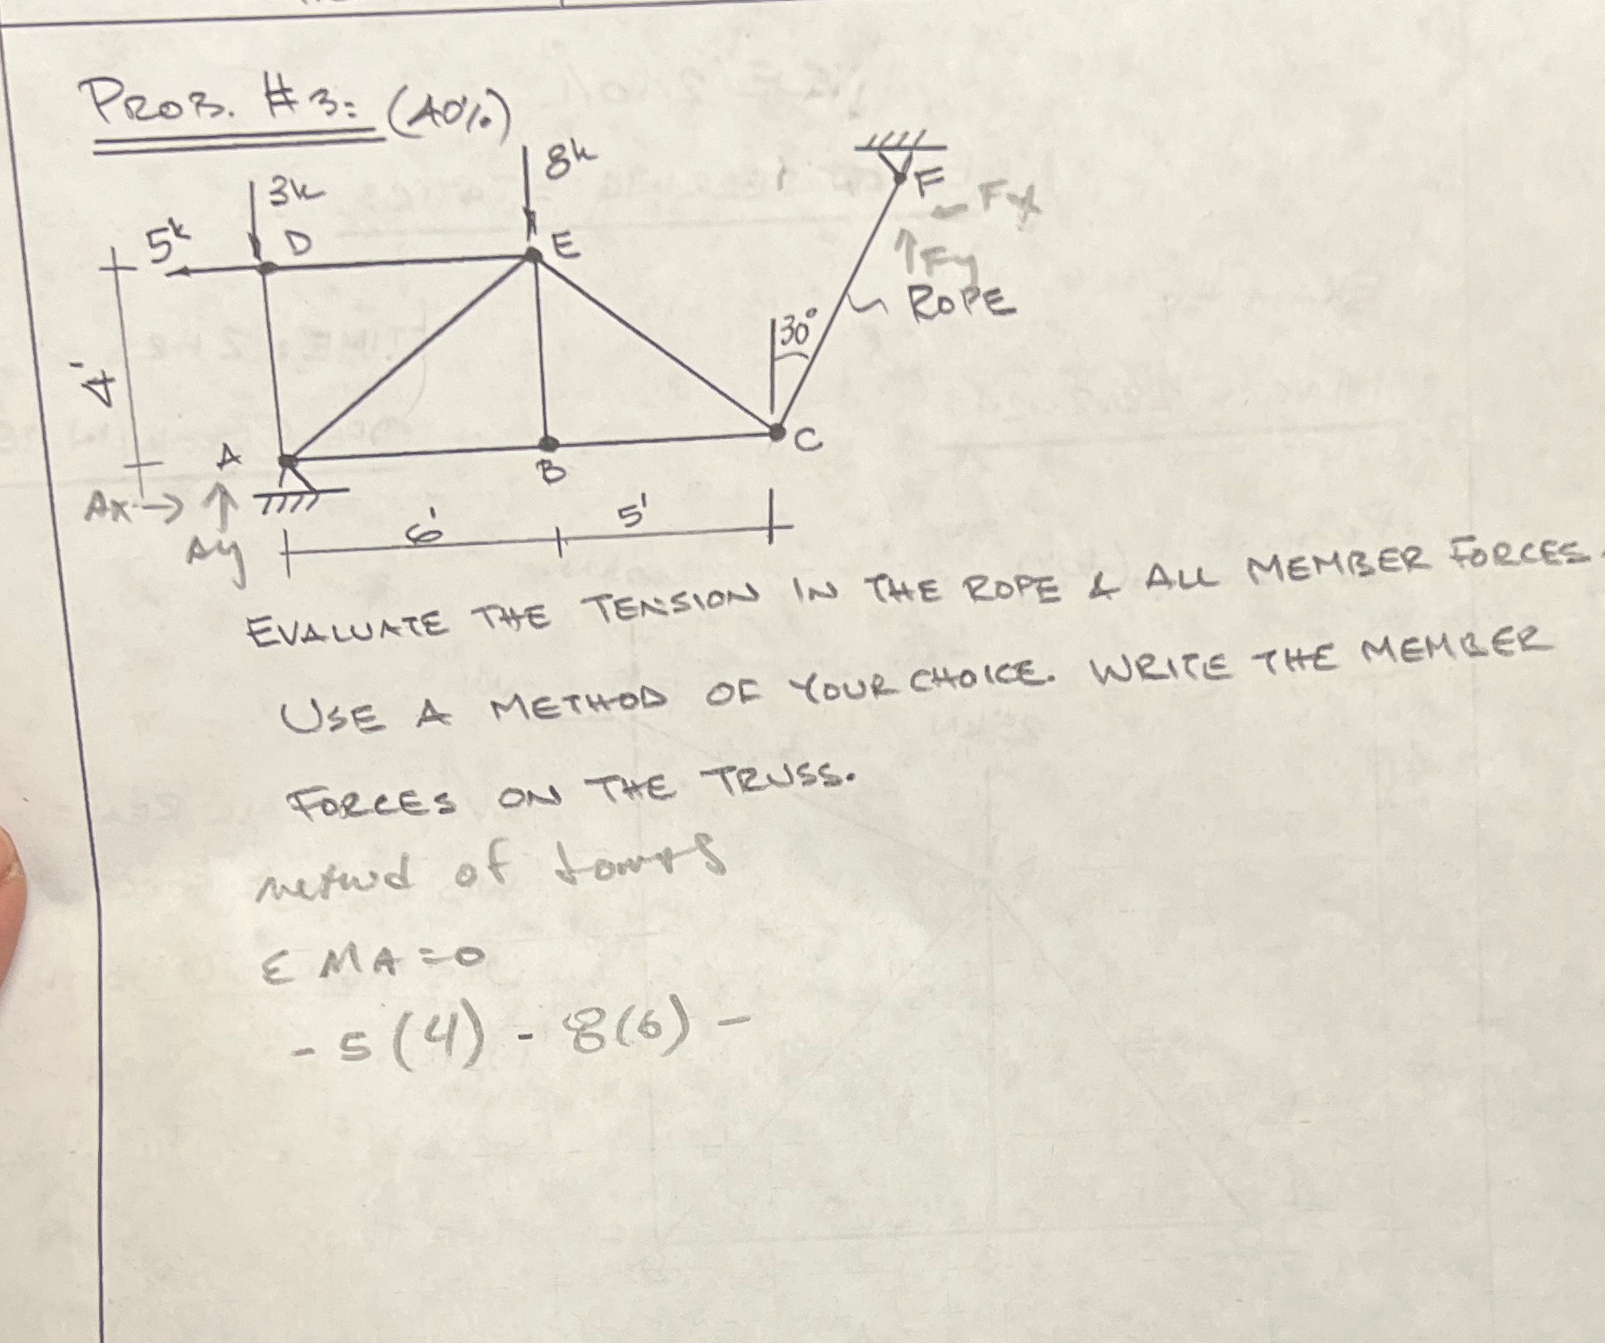 PROB. #3: (40%)
8k
3k
5k
D
E
F
← Fx
↑ Fy
ROPE
30°
4'
A
B
C
Ax →
↑
Ay
6'
5'
EVALUATE THE TENSION IN THE ROPE & ALL MEMBER FORCES.
USE A METHOD OF YOUR CHOICE. WRITE THE MEMBER
FORCES ON THE TRUSS.
method of
Σ MA = 0
- 5(4) - 8(6) -